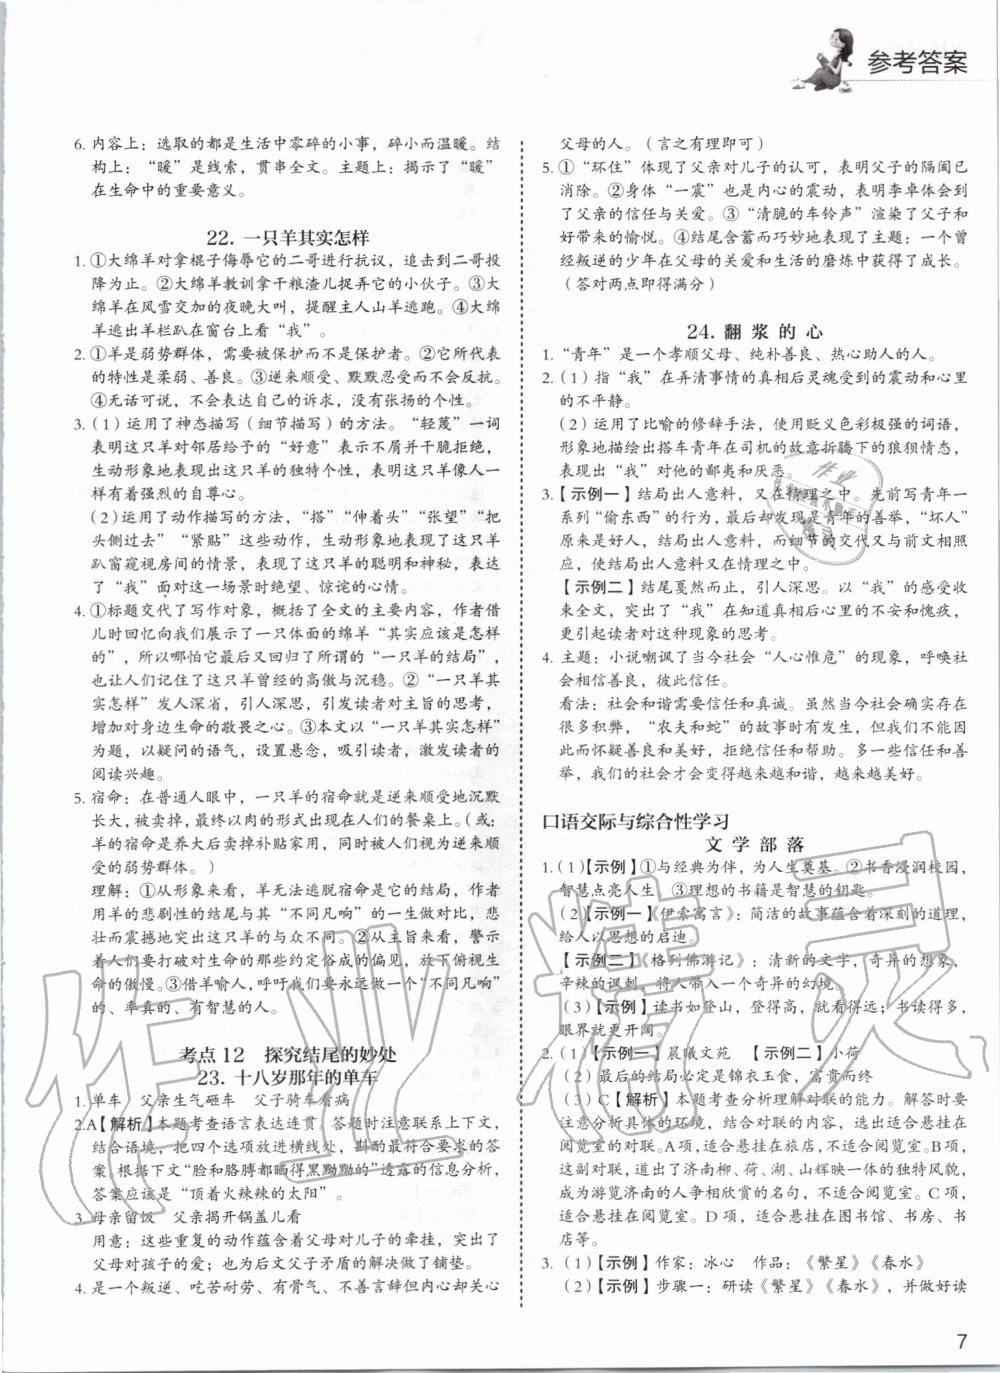 参考答案
6. 内容上：选取的都是生活中零碎的小事，碎小而温暖。结
构上：“暖”是线索，贯串全文。主题上：揭示了“暖”
在生命中的重要意义。
22. 一只羊其实怎样
1. ①大绵羊对拿棍子侮辱它的二哥进行抗议，追击到二哥投
降为止。②大绵羊教训拿干粮渣儿捉弄它的小伙子。③大
绵羊在风雪交加的夜晚大叫，提醒主人山羊逃跑。④大绵
羊逃出羊栏趴在窗台上看“我”。
2. ①羊是弱势群体，需要被保护而不是保护者。②它所代表
的特性是柔弱、善良。③逆来顺受、默默忍受而不会反抗。
④无话可说，不会表达自己的诉求，没有张扬的个性。
3.（1）运用了神态描写（细节描写）的方法。“轻蔑”一词
表明这只羊对邻居给予的“好意”表示不屑并干脆拒绝，
生动形象地表现出这只羊的独特个性，表现这只羊像人一
样有着强烈的自尊心。
（2）运用了动作描写的方法，“搭”“伸着头”“张望”“把
头侧过去”“紧贴”这些动作，生动形象地表现出这只羊
趴窗窥视房间的情景，表现了这只羊的聪明和神秘，表达
了“我”面对这一场景时绝望、惊诧的心情。
4. ①标题交代了写作对象，概括了全文的主要内容，作者借
儿时回忆向我们展示了一只体面的绵羊“其实应该是怎样
的”，所以哪怕它最后又回归了所谓的“一只羊的结局”，
也让人们记住了这只羊曾经的高傲与沉稳。②“一只羊其实
怎样”发人深省，引人深思，引发读者对主旨的思考，
增加对身边生命的敬畏之心。③本文以“一只羊其实怎样”
为题，以疑问的语气，设置悬念，吸引读者，激发读者的
阅读兴趣。
5. 宿命：在普通人眼中，一只羊的宿命就是逆来顺受地沉默
长大，被卖掉，最终以肉的形式出现在人们的餐桌上。（或：
羊的宿命是养大后卖掉补贴家用，它们都是逆来顺受
的弱势群体。）
理解：①从形象来看，羊无法逃脱宿命是它的结局，作者
用羊的悲剧性的结尾与其“不同凡响”的一生做对比，悲
壮而震撼地突出这只羊的与众不同。②从主题来看，警示
着人们要打破对生命的那些约定俗成的偏见，放下俯视生命
的傲慢。③借羊喻人，呼吁我们要永远做一个“不同凡响”
的、率真的、有智慧的人。
考点 12 探究结尾的妙处
23. 十八岁那年的单车
1. 单车 父亲生气砸车 父子骑车看病
2.A【解析】本题考查语言表达连贯。答题时注意联系上下文，
结合语境，把四个选项放进横线处，斟酌最符合要求的答案。
根据下文“脸和胳膊都晒得黑黝黝的”透露的信息分析，
答案应该是“顶着火辣辣的太阳”。
3. 母亲留饭 父亲揭开锅盖儿看
用意：这些重复的动作蕴含着父母对儿子的牵挂，突出了
父母对孩子的爱；也为后文父子矛盾的解决做了铺垫。
4. 是一个叛逆、吃苦耐劳、有骨气、不善言辞但内心却关心
父母的人。（言之有理即可）
5. ①“环住”体现了父亲对儿子的认可，表明父子的隔阂已
消除。②身体“一震”也是内心的震动，表明李卓体会到
了父亲的信任与关爱。③“清脆的车铃声”渲染了父子和
好带来的愉悦。④结尾含蓄而巧妙地表现了主题：一个曾
经叛逆的少年在父母的关爱和生活的磨炼中获得了成长。
（答对两点即得满分）
24. 翻 浆 的 心
1. “青年”是一个孝顺父母、纯朴善良、热心助人的人。
2.（1）指“我”在弄清事情的真相后灵魂受到的震动和心里
的不平静。
（2）运用了比喻的修辞手法，使用贬义色彩极强的词语，
形象地描绘出搭车青年在司机的故意折腾下的狼狈情态，
表现出“我”对他的鄙夷和厌恶。
3.【示例一】结局出人意料，又在情理之中。先前写青年一
系列“偷东西”的行为，最后却发现是青年的善举，“坏人”
原来是好人，结局出人意料，而细节的交代又与前文相照
应，使结局出人意料又在情理之中。
【示例二】结尾戛然而止，引人深思。以“我”的感受收
束全文，突出了“我”在知道真相后心里的不安和愧疚，
更引起读者对这种现象的思考。
4. 主题：小说嘲讽了当今社会“人心惟危”的现象，呼唤社
会相信善良，彼此信任。
看法：社会和谐需要信任和真诚。虽然当今社会存在
很多积弊，“农夫和蛇”的故事时有发生，但我们不能因
此而怀疑善良和美好，拒绝信任和帮助。多一些信任和善
举，我们的社会才会变得越来越和谐，越来越美好。
口语交际与综合性学习
文 学 部 落
1.（1）【示例】①与经典为伴，为人生奠基。②书香浸润校园，
智慧点亮人生。③理想的书籍是智慧的钥匙。
（2）【示例一】《伊索寓言》：简洁的故事蕴含着深刻的道理，
给人以思想的启迪。
【示例二】《格列佛游记》：清新的文字，奇异的想象，
辛辣的讽刺，将人带入一个奇异的幻境。
（3）【示例】读书如登山，登得高，就看得远；书读得多，
眼界就更开阔。
2.（1）【示例一】晨曦文苑 【示例二】小荷
（2）最后的结局必定是锦衣玉食，富贵而终
（3）C【解析】本题考查分析理解对联的能力。解答时要
注意结合对联的内容，选出适合悬挂在
阅览室的对联。A项，适合悬挂在旅店，不适合阅览室。B项，
这副对联，道出了济南柳、荷、湖、山辉映一体的独特风貌，
成为游览济南的人争相欣赏的名句，不适合阅览室。C项，
适合悬挂在阅览室。D项，适合悬挂在图书馆、书房、书
店等。
3.（1）【示例】作家：冰心 作品：《繁星》《春水》
（2）【示例】步骤一：研读《繁星》《春水》，并做好读
7